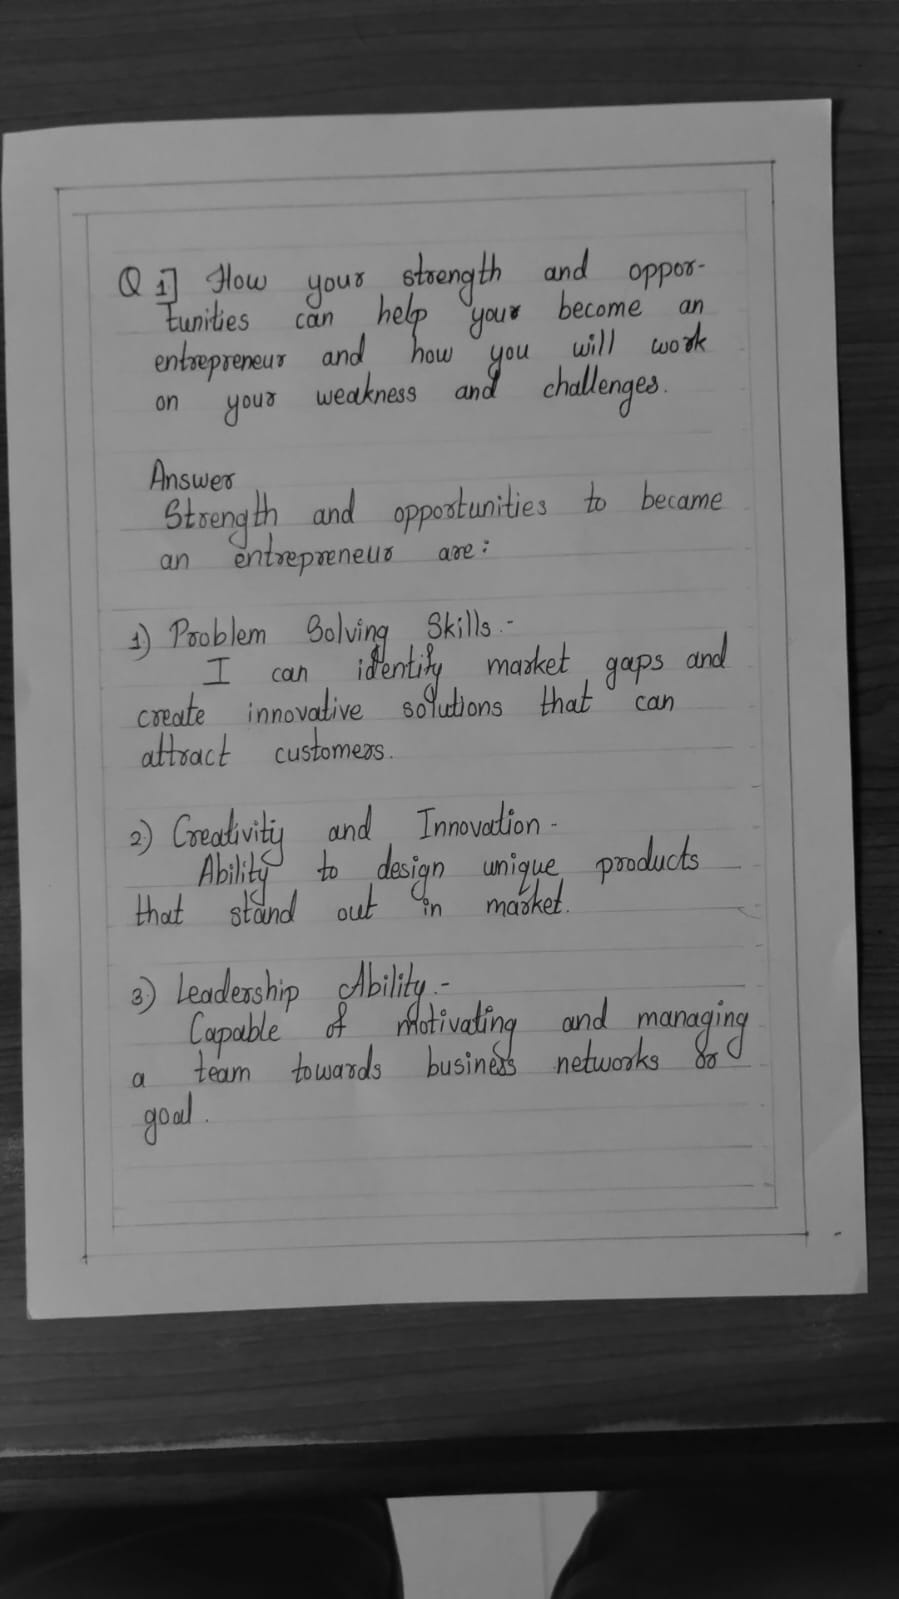 Q 1] How your strength and oppor-
tunities can help your become an
entrepreneur and how you will work
on your weakness and challenges.
Answer
Strength and opportunities to became
an entrepreneur are:
1) Problem Solving Skills.-
I can identify market gaps and
create innovative solutions that can
attract customers.
2) Creativity and Innovation-
Ability to design unique products
that stand out in market.
3) Leadership Ability.-
Capable of motivating and managing
a team towards business networks or
goal.